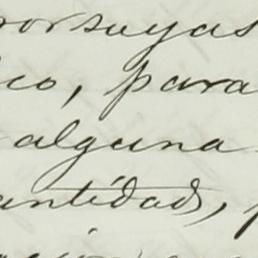 por suyas
co, para
alguna
antidad,